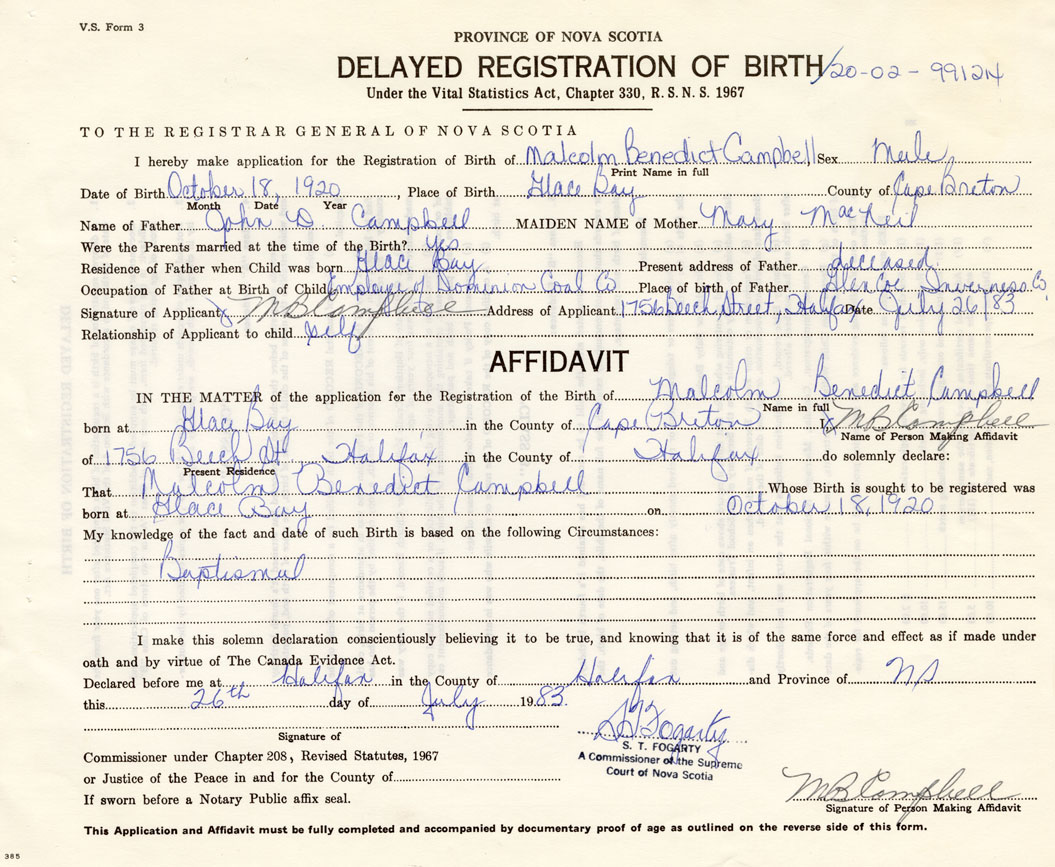 V.S. Form 3
PROVINCE OF NOVA SCOTIA
DELAYED REGISTRATION OF BIRTH 20-02-99124
Under the Vital Statistics Act, Chapter 330, R.S.N.S. 1967
TO THE REGISTRAR GENERAL OF NOVA SCOTIA
I hereby make application for the Registration of Birth of Malcolm Benedict Campbell Sex Male
Print Name in full
Date of Birth October 18, 1920, Place of Birth Glace Bay County of Cape Breton
Month Date Year
Name of Father John D Campbell MAIDEN NAME of Mother Mary MacNeil
Were the Parents married at the time of the Birth? yes
Residence of Father when Child was born Glace Bay Present address of Father deceased
Occupation of Father at Birth of Child Employee of Dominion Coal Co Place of birth of Father Glencoe Inverness Co
Signature of Applicant x MB Campbell Address of Applicant 1756 Beech Street, Halifax Date July 26/83
Relationship of Applicant to child self
AFFIDAVIT
IN THE MATTER of the application for the Registration of the Birth of Malcolm Benedict Campbell
Name in full
born at Glace Bay in the County of Cape Breton I, x MB Campbell
Name of Person Making Affidavit
of 1756 Beech St Halifax in the County of Halifax do solemnly declare:
Present Residence
That Malcolm Benedict Campbell Whose Birth is sought to be registered was
born at Glace Bay on October 18, 1920
My knowledge of the fact and date of such Birth is based on the following Circumstances:
Baptismal
I make this solemn declaration conscientiously believing it to be true, and knowing that it is of the same force and effect as if made under
oath and by virtue of The Canada Evidence Act.
Declared before me at Halifax in the County of Halifax and Province of NS
this 26th day of July 1983.
S T Fogarty
Signature of
S. T. FOGARTY
A Commissioner of the Supreme
Court of Nova Scotia
Commissioner under Chapter 208, Revised Statutes, 1967
or Justice of the Peace in and for the County of
If sworn before a Notary Public affix seal.
MB Campbell
Signature of Person Making Affidavit
This Application and Affidavit must be fully completed and accompanied by documentary proof of age as outlined on the reverse side of this form.
385